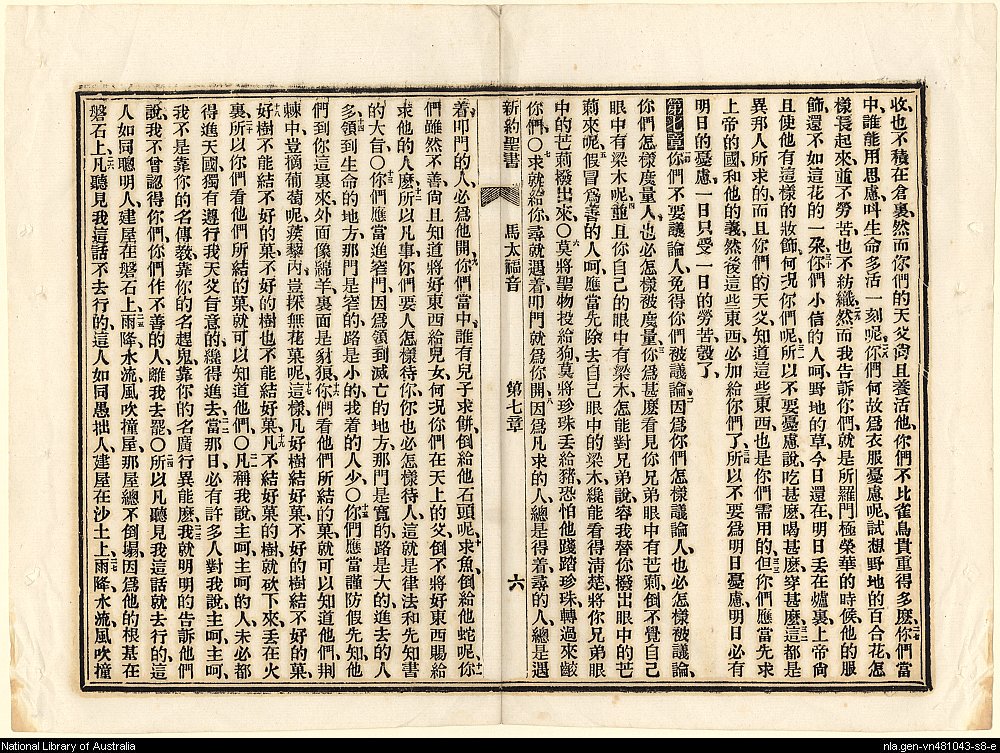 收也不積在倉裏然而你們的天父尙且養活他你們不比雀鳥貴重得多麼你們當
中誰能用思慮叫生命多活一刻呢你們何故爲衣服憂慮呢試想野地的百合花怎
樣長起來並不勞苦也不紡織然而我告訴你們就是所羅門極榮華的時候他的服
飾還不如這花的一朶你們小信的人呵野地的草今日還在明日丢在爐裏上帝尙
且使他有這樣的妝飾何況你們呢所以不要憂慮說吃甚麼喝甚麼穿甚麼這都是
異邦人所求的而且你們的天父知道這些東西也是你們需用的但你們應當先求
上帝的國和他的義然後這些東西必加給你們了所以不要爲明日憂慮明日必有
明日的憂慮一日只受一日的勞苦彀了
第七章你們不要議論人免得你們被議論因爲你們怎樣議論人也必怎樣被議論
你們怎樣度量人也必怎樣被度量你爲甚麼看見你兄弟眼中有芒莿倒不覺自己
眼中有梁木呢並且你自己的眼中有梁木怎能對兄弟說容我替你撥出眼中的芒
莿來呢假冒爲善的人呵應當先除去自己眼中的梁木纔能看得淸楚將你兄弟眼
中的芒莿撥出來〇莫將聖物投給狗莫將珍珠丢給豬恐怕他踐踏珍珠轉過來齩
你們〇求就給你尋就遇着叩門就爲你開因爲凡求的人總是得着尋的人總是遇
新約聖書 馬太福音 第七章 六
着叩門的人必爲他開你們當中誰有兒子求餅倒給他石頭呢求魚倒給他蛇呢你
們雖然不善尙且知道將好東西給兒女何況你們在天上的父倒不將好東西賜給
求他的人麼所以凡事你們要人怎樣待你你也必怎樣待人這就是律法和先知書
的大旨〇你們應當進窄門因爲領到滅亡的地方那門是寬的路是大的進去的人
多領到生命的地方那門是窄的路是小的我着的人少〇你們應當謹防假先知他
們到你這裏來外面像綿羊裏面是豺狼你們看他們所結的菓就可以知道他們荆
棘中豈摘葡萄呢蒺藜內豈採無花菓呢這樣凡好樹結好菓不好的樹結不好的菓
好樹不能結不好的菓不好的樹也不能結好菓凡不結好菓的樹就砍下來丢在火
裏所以你們看他們所結的菓就可以知道他們〇凡稱我說主呵主呵的人未必都
得進天國獨有遵行我天父旨意的纔得進去當那日必有許多人對我說主呵主呵
我不是靠你的名傳教靠你的名趕鬼靠你的名廣行異能麼我就明明的告訴他們
說我不曾認得你們你們作不善的人離我去罷〇所以凡聽見我這話就去行的這
人如同聰明人建屋在磐石上雨降水流風吹撞屋那屋總不倒塌因爲他的根基在
磐石上凡聽見我這話不去行的這人如同愚拙人建屋在沙土上雨降水流風吹撞
National Library of Australia
nla.gen-vn481043-s8-e